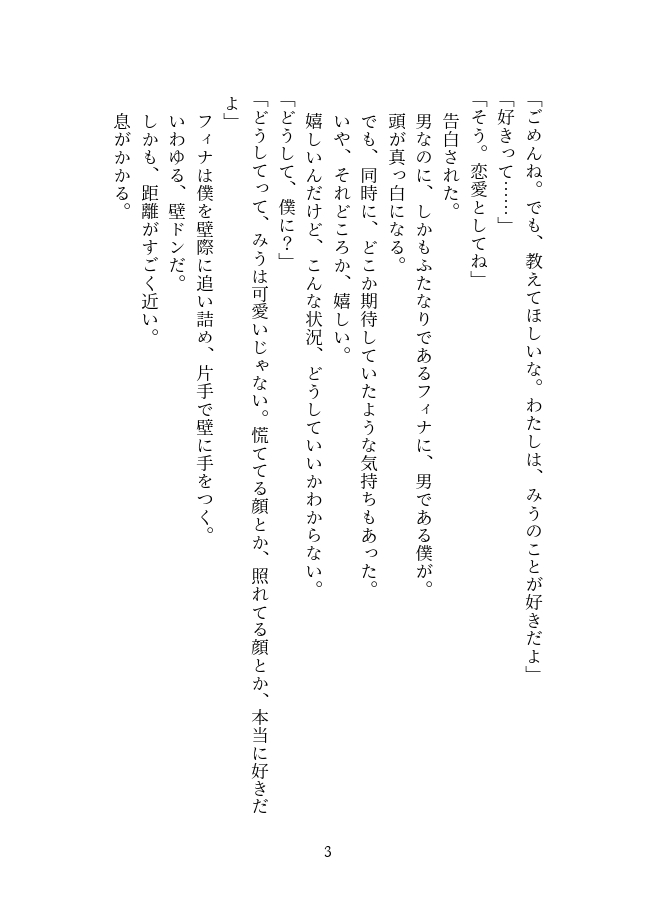 「ごめんね。でも、教えてほしいな。わたしは、みうのことが好きだよ」
「好きって……」
「そう。恋愛としてね」
告白された。
男なのに、しかもふたなりであるフィナに、男である僕が。
頭が真っ白になる。
でも、同時に、どこか期待していたような気持ちもあった。
いや、それどころか、嬉しい。
嬉しいんだけど、こんな状況、どうしていいかわからない。
「どうして、僕に？」
「どうしてって、みうは可愛いじゃない。慌ててる顔とか、照れてる顔とか、本当に好きだ
よ」
フィナは僕を壁際に追い詰め、片手で壁に手をつく。
いわゆる、壁ドンだ。
しかも、距離がすごく近い。
息がかかる。
3